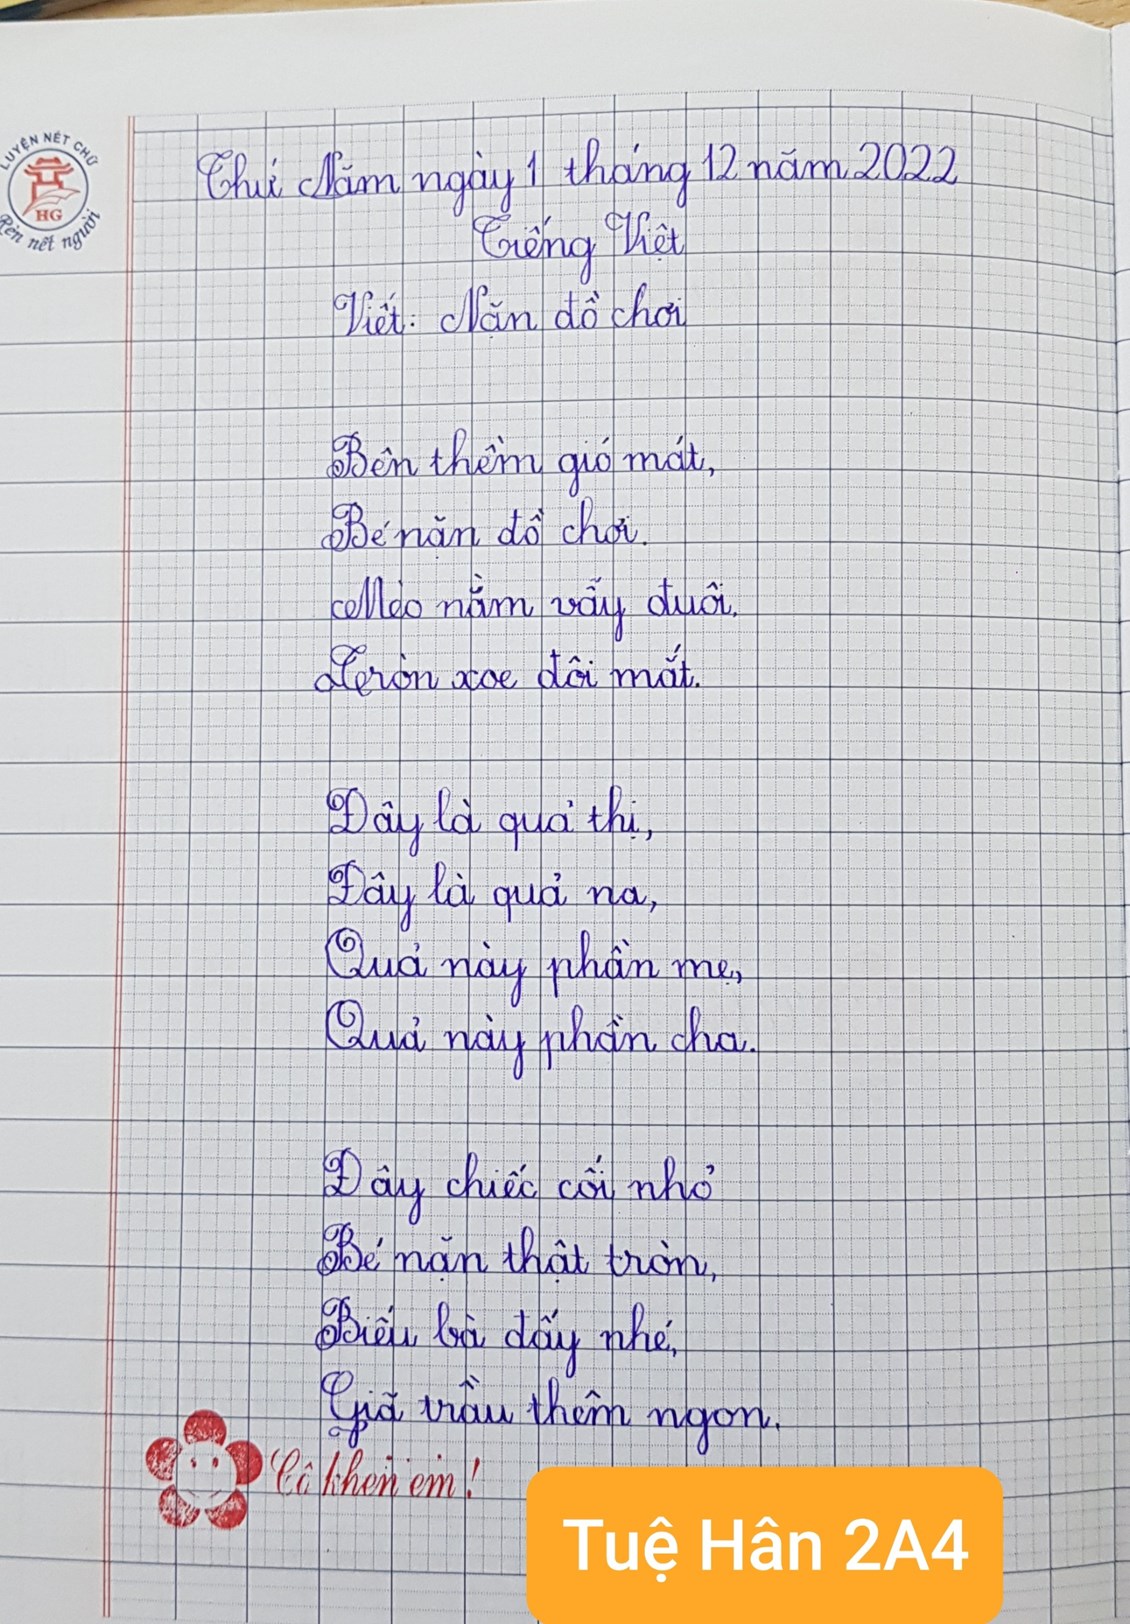 LUYỆN NÉT CHỮ
HG
Rèn nết người
Thứ Năm ngày 1 tháng 12 năm 2022
Tiếng Việt
Viết: Nặn đồ chơi
Bên thềm gió mát,
Bé nặn đồ chơi.
Mèo nằm vẫy đuôi,
Tròn xoe đôi mắt.
Đây là quả thị,
Đây là quả na,
Quả này phần mẹ,
Quả này phần cha.
Đây chiếc cối nhỏ
Bé nặn thật tròn,
Biếu bà đấy nhé,
Giã trầu thêm ngon.
Cô khen em!
Tuệ Hân 2A4